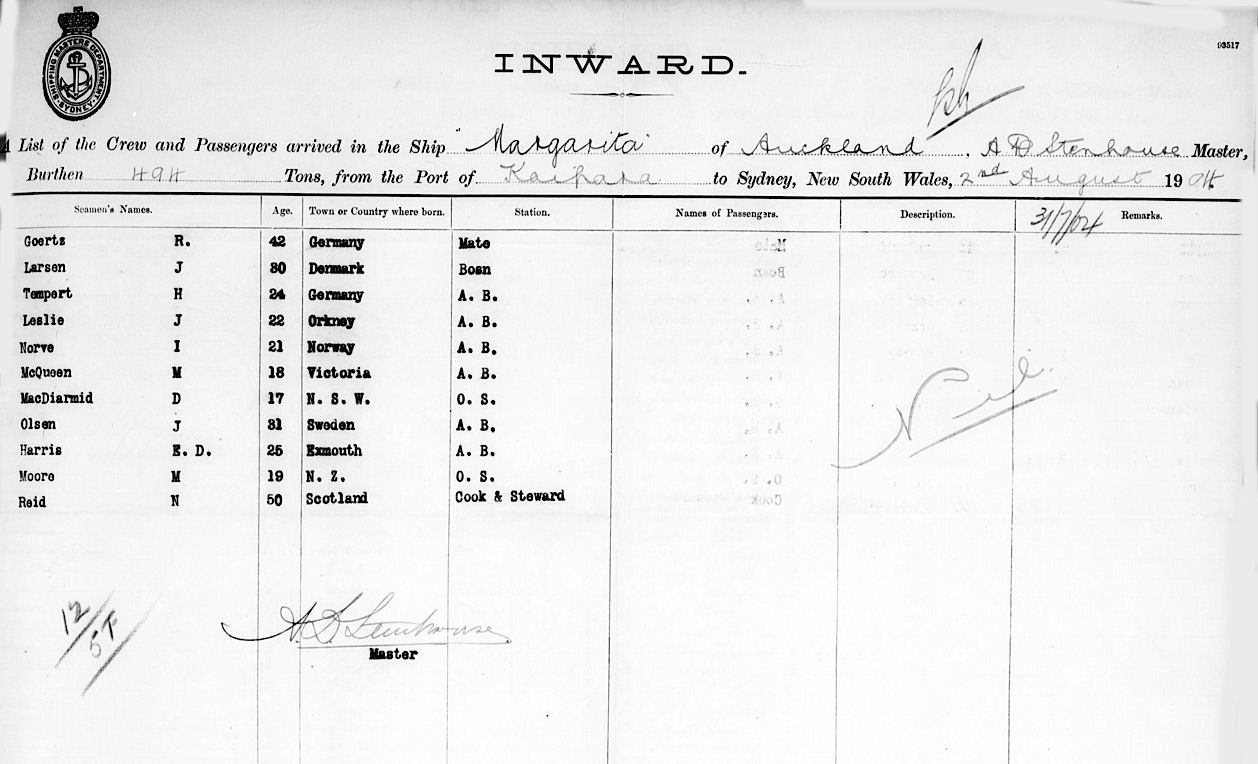 SHIPPING MASTERS DEPARTMENT SYDNEY
93517
INWARD.
A List of the Crew and Passengers arrived in the Ship "Margarita" of Auckland, A D Stenhouse Master,
Burthen 494 Tons, from the Port of Kaipara to Sydney, New South Wales, 2nd August 1904
Seamen's Names. Age. Town or Country where born. Station. Names of Passengers. Description. Remarks.
31/7/04
Goertz R. 42 Germany Mate
Larsen J 30 Denmark Bosn
Tempert H 24 Germany A. B.
Leslie J 22 Orkney A. B.
Norve I 21 Norway A. B.
McQueen M 18 Victoria A. B.
MacDiarmid D 17 N. S. W. O. S.
Nil.
Olsen J 31 Sweden A. B.
Harris E. D. 25 Exmouth A. B.
Moore M 19 N. Z. O. S.
Reid N 50 Scotland Cook & Steward
12
A. D. Stenhouse
Master